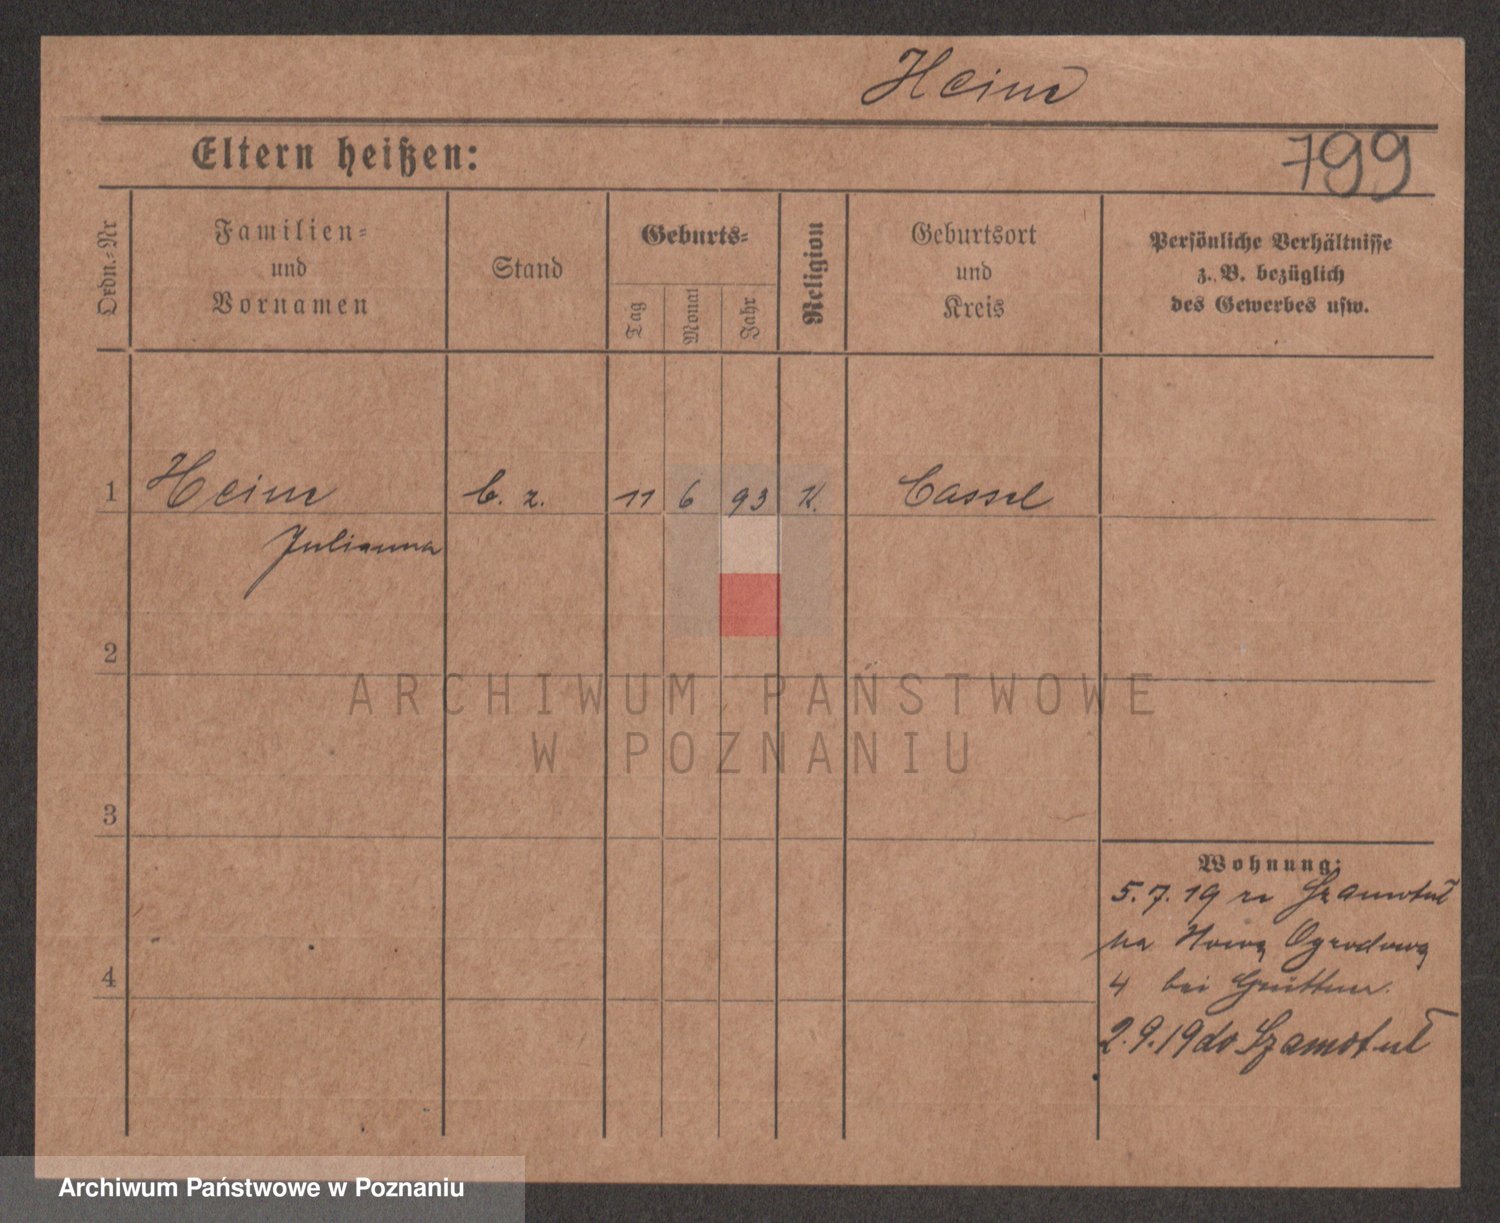 Heine
Eltern heißen:
799
Ordn.-Nr
Familien-
und
Vornamen
Stand
Geburts-
Tag
Monat
Jahr
Religion
Geburtsort
und
Kreis
Persönliche Verhältnisse
z. B. bezüglich
des Gewerbes usw.
1 Heine b. z. 11 6 93 K. Cassel
Julianna
2
3
4
Wohnung:
5.7.19 ze Szamotuł
na Nową Ogrodową
4 bei Grüttner.
2.9.19 do Szamotuł
ARCHIWUM PAŃSTWOWE
W POZNANIU
Archiwum Państwowe w Poznaniu